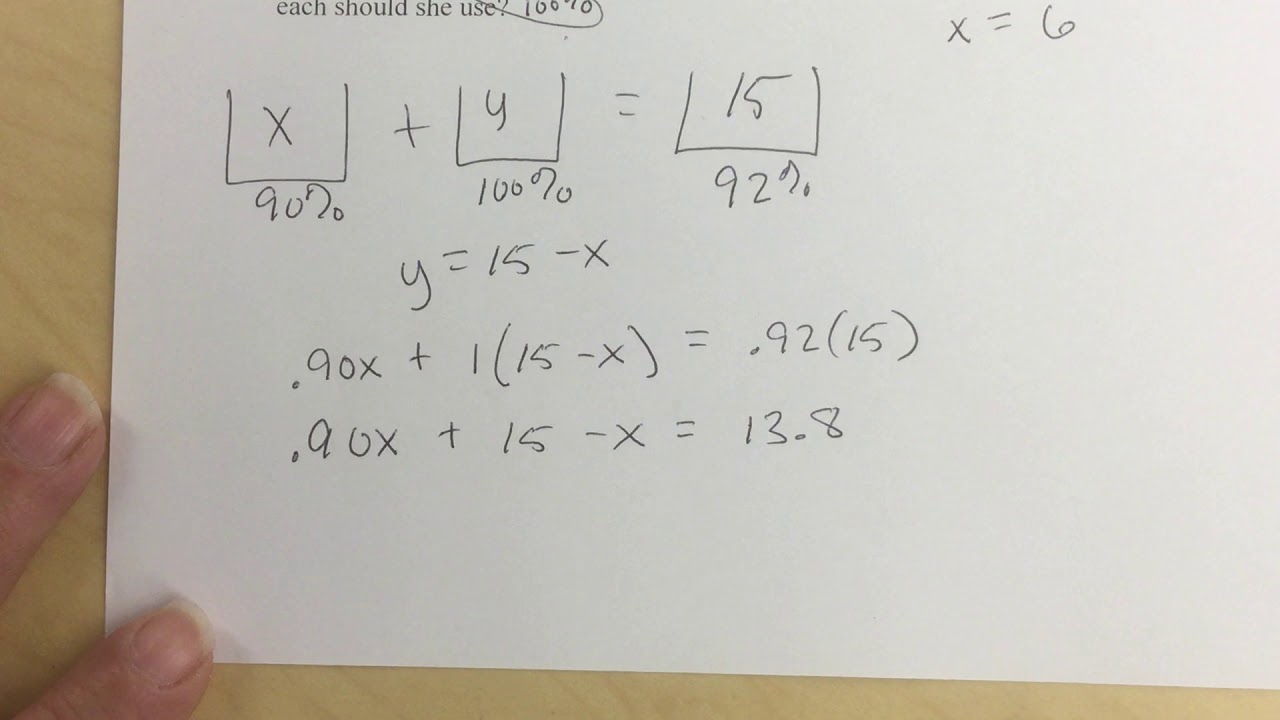 each should she use? 100%
x = 6
x + y = 15
90% 100% 92%
y = 15 - x
.90x + 1(15 - x) = .92(15)
.90x + 15 - x = 13.8